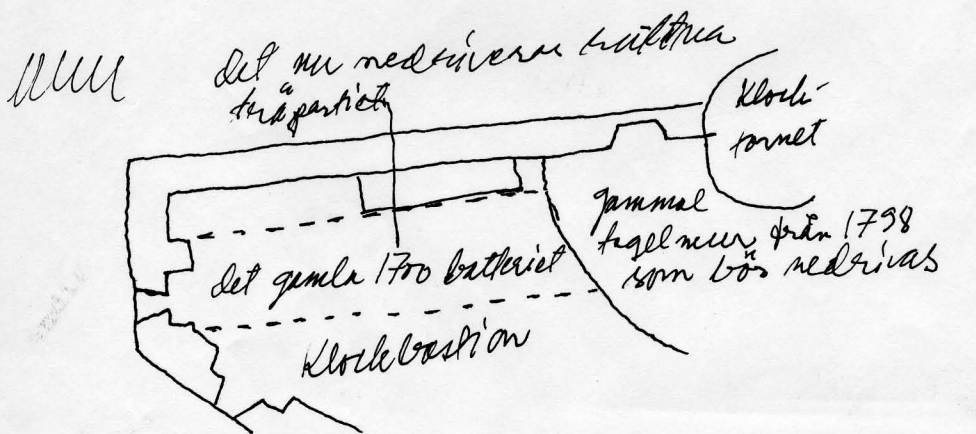 det nu nedrivna
träpartiet
Klock-
tornet
gammal
tegelmur från 1798
som bör nedrivas
det gamla 1700 batteriet
Klockbastion